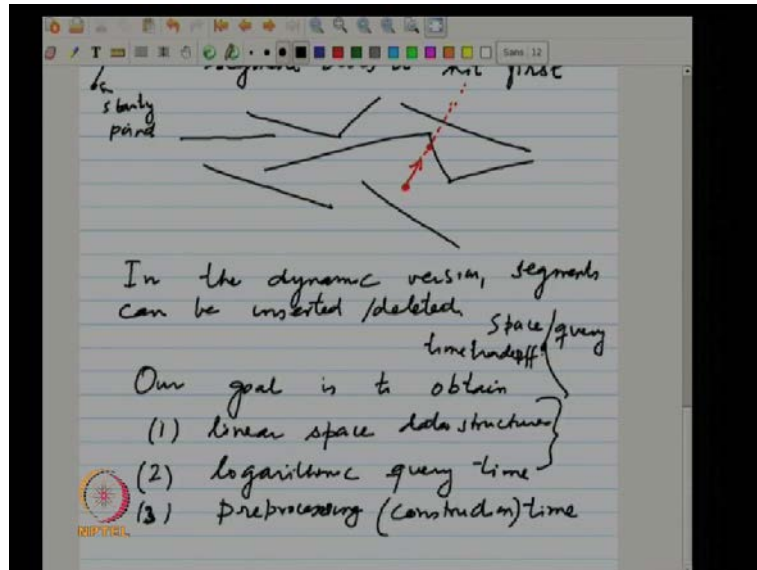 T Sans 12
segment hit first
starty
point
In the dynamic version, segments
can be inserted /deleted.
space/query
time tradeoff
Our goal is to obtain
(1) linear space data structures
(2) logarithmic query time
(3) preprocessing (construction) time
NPTEL